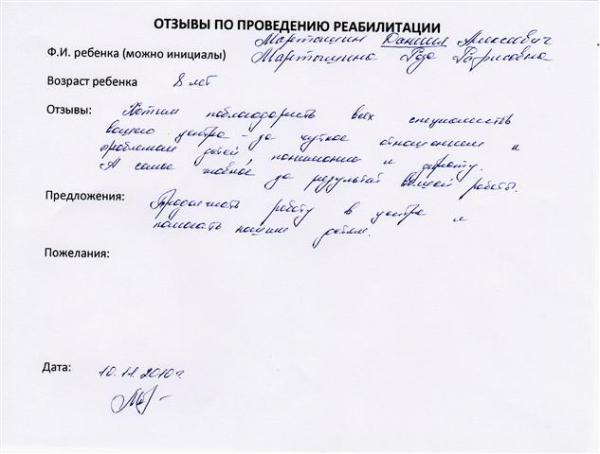 ОТЗЫВЫ ПО ПРОВЕДЕНИЮ РЕАБИЛИТАЦИИ
Мартощин Даниил Алексевич
Ф.И. ребенка (можно инициалы) Мартощина
Возраст ребенка 8 лет
Отзывы: Хотим поблагодарить всех специалистов
вашего центра - за чуткое отношение к
проблемам детей, понимание и доброту.
А самое главное за результат вашей работы.
Предложения: Продолжать работу в центре и
помогать нашим детям.
Пожелания:
Дата: 10.11.2010г.